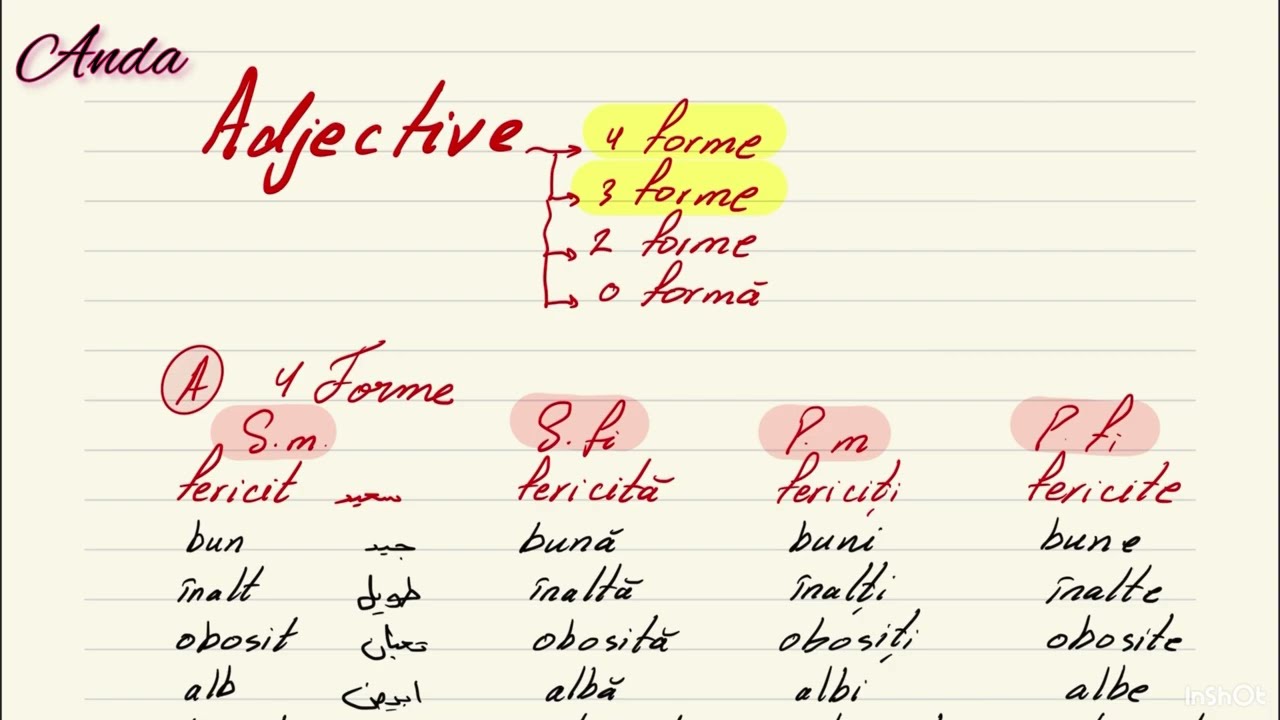 Anda
Adjective
4 forme
3 forme
2 forme
0 formă
A 4 Forme
S.m. S.fi P.m P.fi
fericit سعيد fericită fericiți fericite
bun جيد bună buni bune
înalt طويل înaltă înalți înalte
obosit تعبان obosită obosiți obosite
alb ابيض albă albi albe
InShOt